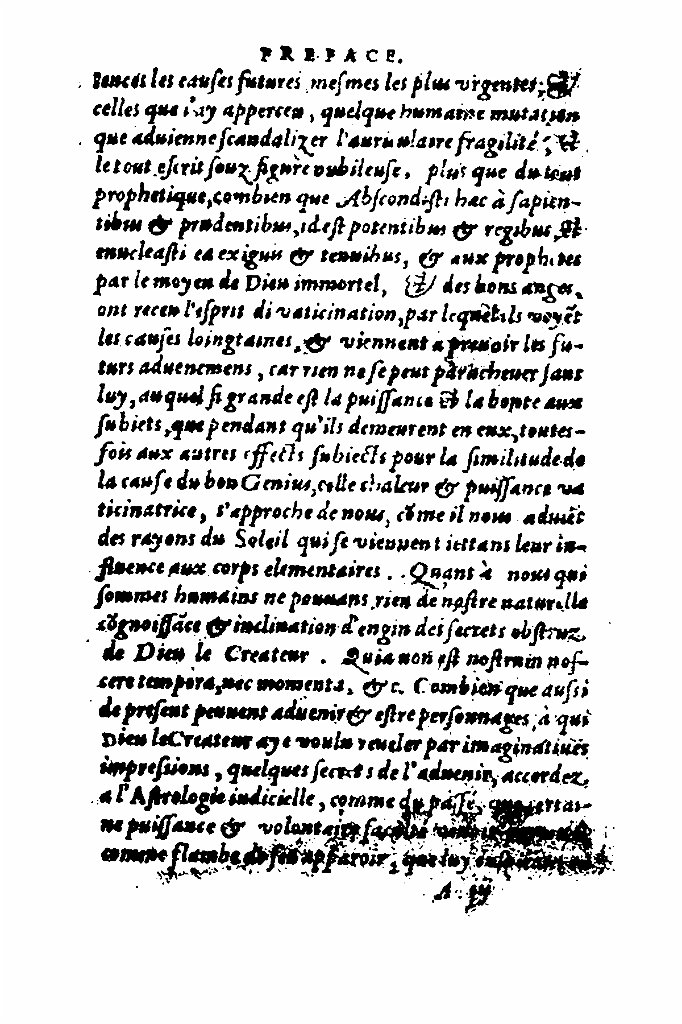 PREFACE.
les cauſes futures meſmes les plus vrgentes, &
celles que i'ay apperceu, quelque humaine mutation
que aduienne ſcandalizer l'auriculaire fragilité, &
le tout eſcrit ſouz figure nubileuſe, plus que du tout
prophetique, combien que Abſcondiſti hac à ſapien-
tibus & prudentibus, id eſt potentibus & regibus, &
enucleaſti ea exiguis & tenuibus, & aux prophetes
par le moyen de Dieu immortel, & des bons anges,
ont receu l'eſprit de vaticination, par lequel ils voyẽt
les cauſes loingtaines, & viennent a preuoir les fu-
turs aduenemens, car rien ne ſe peut paracheuer ſans
luy, auquel ſi grande eſt la puiſſance & la bonte aux
ſubiets, que pendant qu'ils demeurent en eux, toutes-
fois aux autres effects ſubiects pour la ſimilitude de
la cauſe du bon Genius, celle chaleur & puiſſance va
ticinatrice, s'approche de nous, cõme il nous aduiẽt
des rayons du Soleil qui ſe viennent iettans leur in-
fluence aux corps elementaires. Quant à nous qui
ſommes humains ne pouuans rien de noſtre naturelle
cõgnoiſſãce & inclination d'engin des ſecrets obſtruz
de Dieu le Createur. Quia non eſt noſtrum noſ-
cere tempora, nec momenta, &c. Combien que auſſi
de preſent peuuent aduenir & eſtre perſonnages, à qui
Dieu le Createur aye voulu reueler par imaginatiues
impreſsions, quelques ſecrets de l'aduenir, accordez
a l'Aſtrologie iudicielle, comme du paſſé, que certai-
ne puiſſance & volontaire faculté
comme flambe de feu apparoir, que luy
A iij